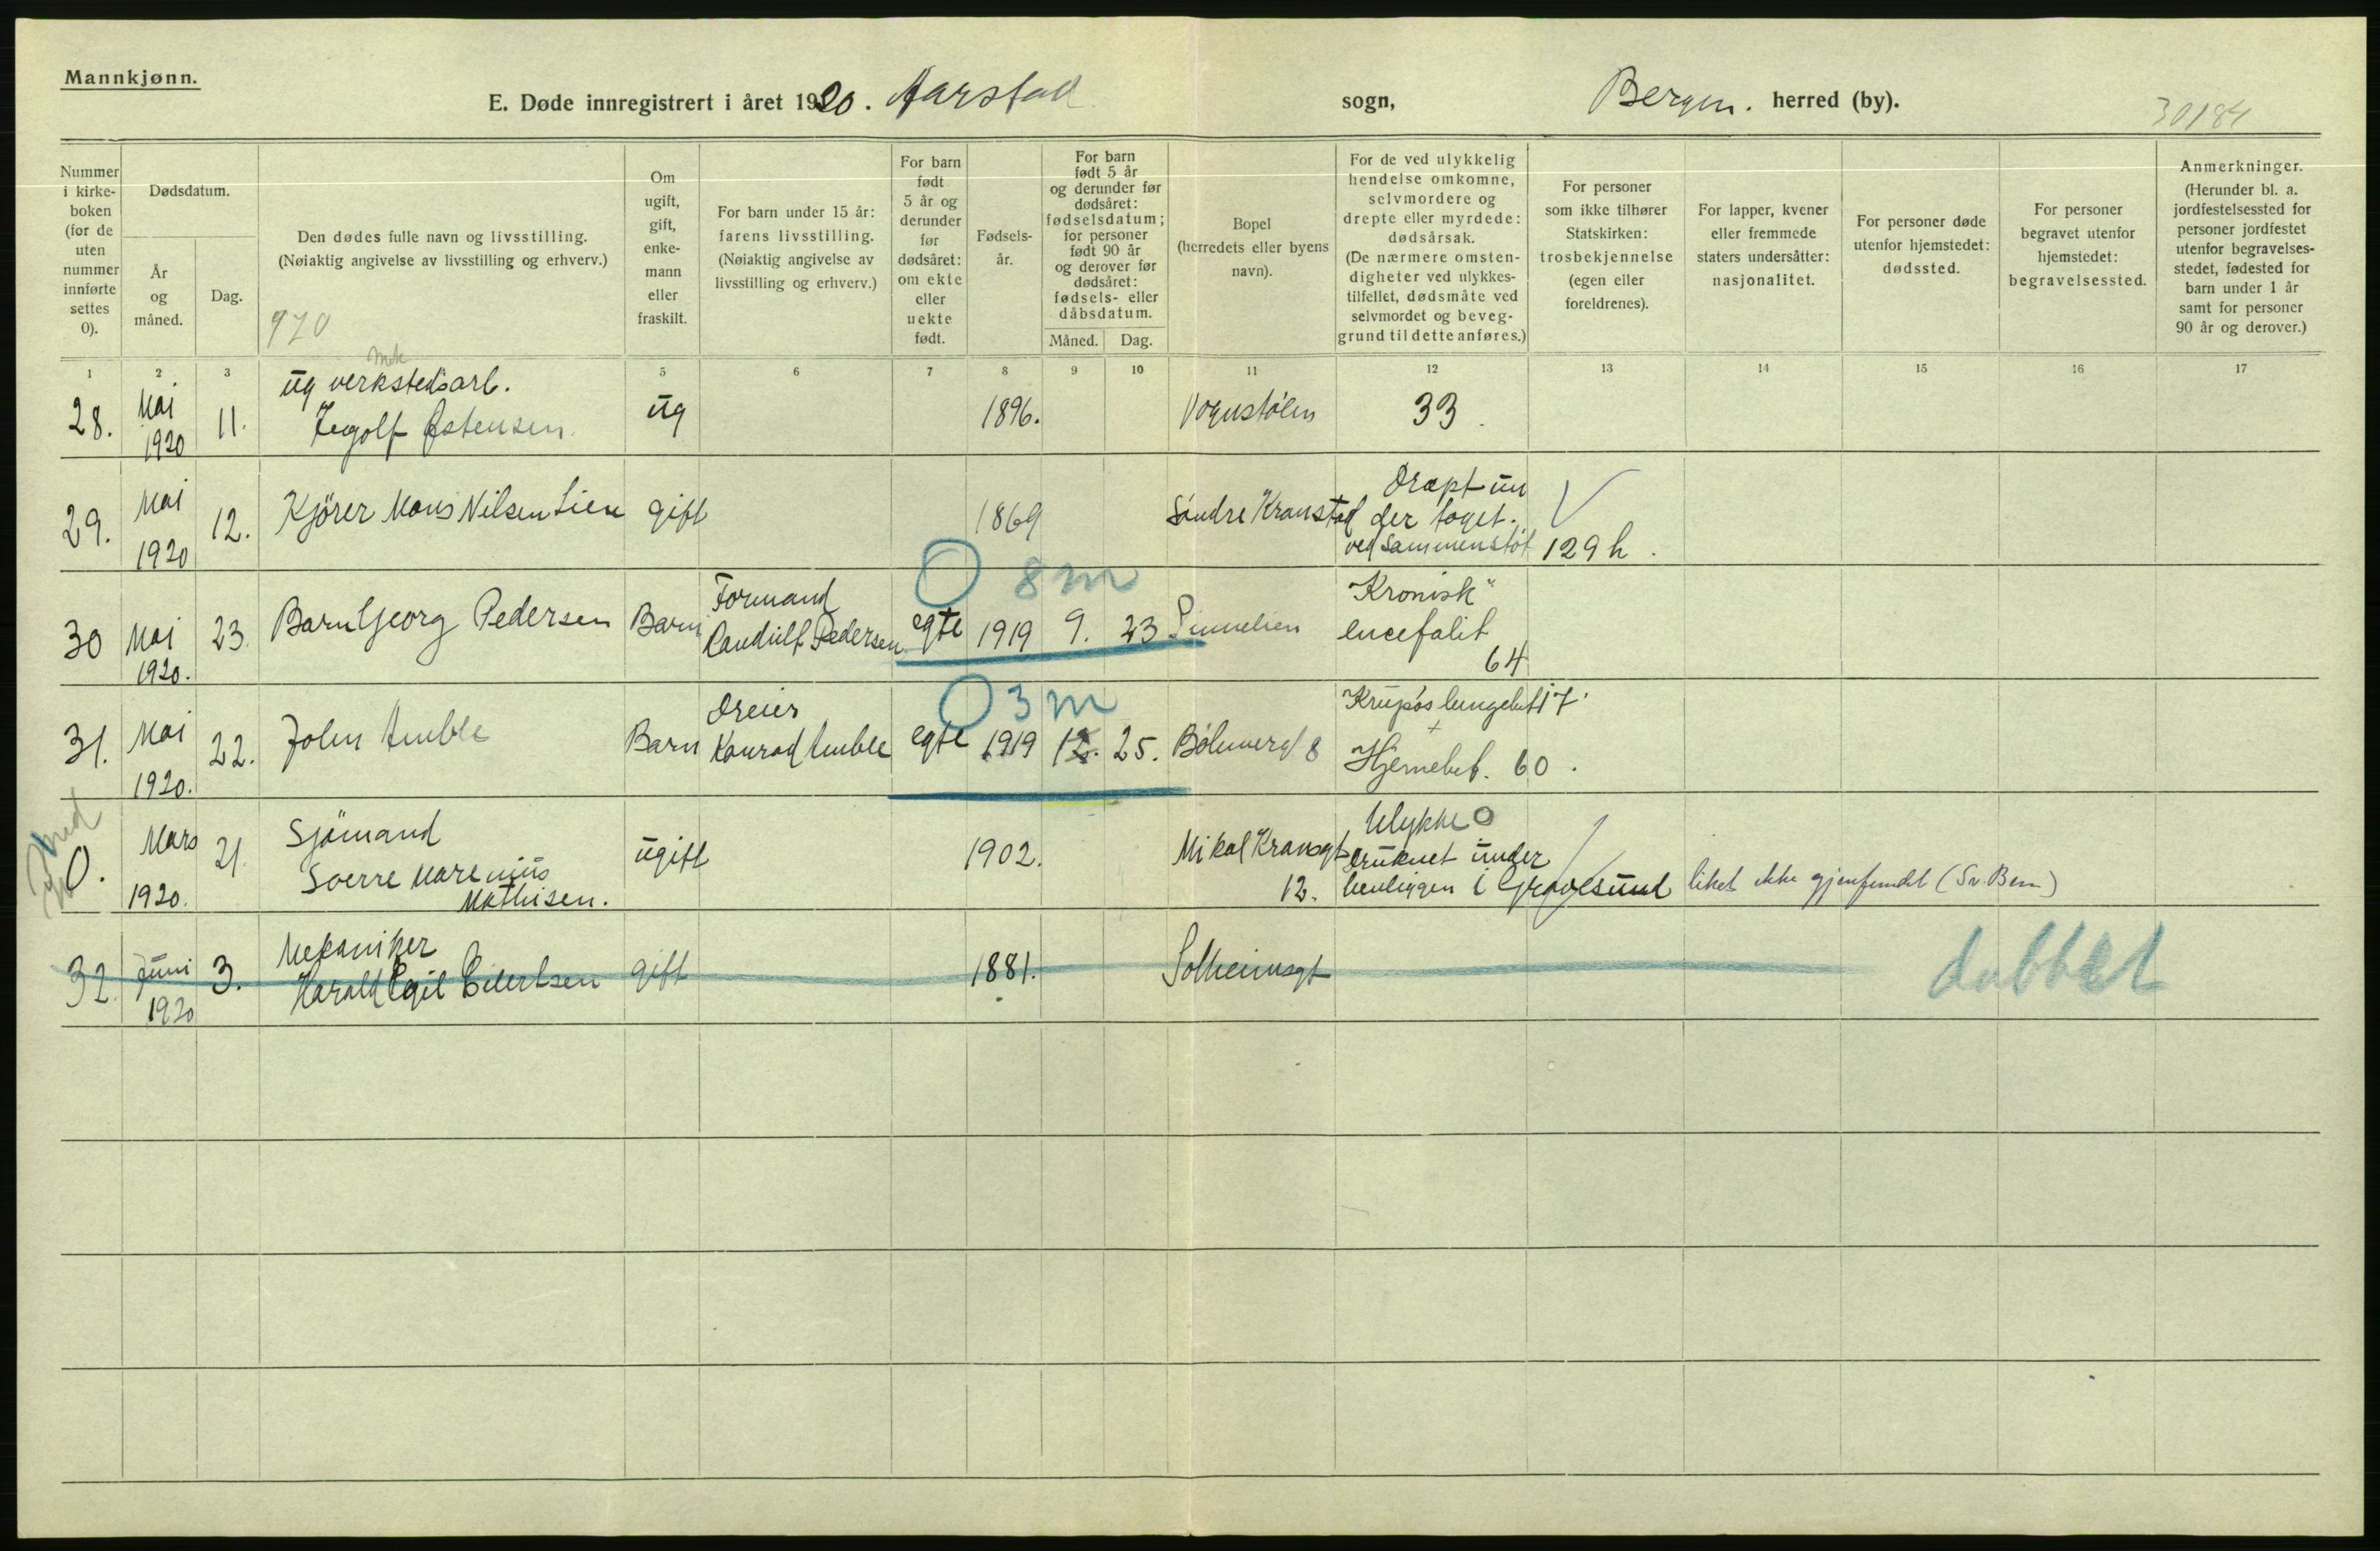 Mannkjønn.
E. Døde innregistrert i året 1920. Aarstad sogn, Bergen. herred (by).
30184
Nummer i kirke- boken (for de uten nummer innførte settes 0).
Dødsdatum.
År og måned.
Dag.
Den dødes fulle navn og livsstilling.
(Nøiaktig angivelse av livsstilling og erhverv.)
920
Om ugift, gift, enke- mann eller fraskilt.
For barn under 15 år: farens livsstilling.
(Nøiaktig angivelse av livsstilling og erhverv.)
For barn født 5 år og derunder før dødsåret: om ekte eller uekte født.
Fødsels- år.
For barn født 5 år og derunder før dødsåret: fødselsdatum; for personer født 90 år og derover før dødsåret: fødsels- eller dåbsdatum.
Måned. Dag.
Bopel (herredets eller byens navn).
For de ved ulykkelig hendelse omkomne, selvmordere og drepte eller myrdede: dødsårsak.
(De nærmere omsten- digheter ved ulykkes- tilfellet, dødsmåte ved selvmordet og beveg- grund til dette anføres.)
For personer som ikke tilhører Statskirken: trosbekjennelse (egen eller foreldrenes).
For lapper, kvener eller fremmede staters undersåtter: nasjonalitet.
For personer døde utenfor hjemstedet: dødssted.
For personer begravet utenfor hjemstedet: begravelsessted.
Anmerkninger.
(Herunder bl. a. jordfestelsessted for personer jordfestet utenfor begravelses- stedet, fødested for barn under 1 år samt for personer 90 år og derover.)
1 2 3 5 6 7 8 9 10 11 12 13 14 15 16 17
mek
ug verkstedsarb.
28. Mai 1920 11. Ingolf Østensen. ug 1896. Vognstølen 33.
29. Mai 1920 12. Kjörer Mons Nilsen Lien gift 1869 Söndre Kronstad
Dræpt un
der toget.
ved sammenstöt 129 h.
8 m
30 Mai 1920. 23. Barn Georg Pedersen Barn
Formand
Randulf Pedersen egte 1919 9. 23
"Kronisk"
encefalit
64
3 m
31. Mai 1920. 22. John Amble Barn
Dreier
Konrad Amble egte 1919 12. 25. 8
Krupøs lungebet 17.
+
Hjernebet. 60.
0. Mars 1920. 21.
Sjömand
Sverre Marenius
Mathisen.
ugift 1902.
Mikal Kransgt
12.
Ulykke
druknet under
i Gravesund liket ikke gjenfundet (Sv. Bem)
32. Juni 1920 3.
Mekaniker
Harald Egil Eilertsen gift 1881. Solheimsgt
dubbet